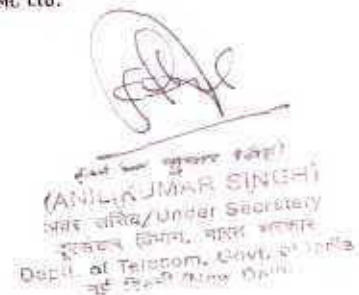 Ltd.
कुमार सिंह)
(ANIL KUMAR SINGH)
अवर सचिव/Under Secretary
दूरसंचार विभाग, भारत सरकार
Deptt. of Telecom, Govt. of India
नई दिल्ली/New Delhi